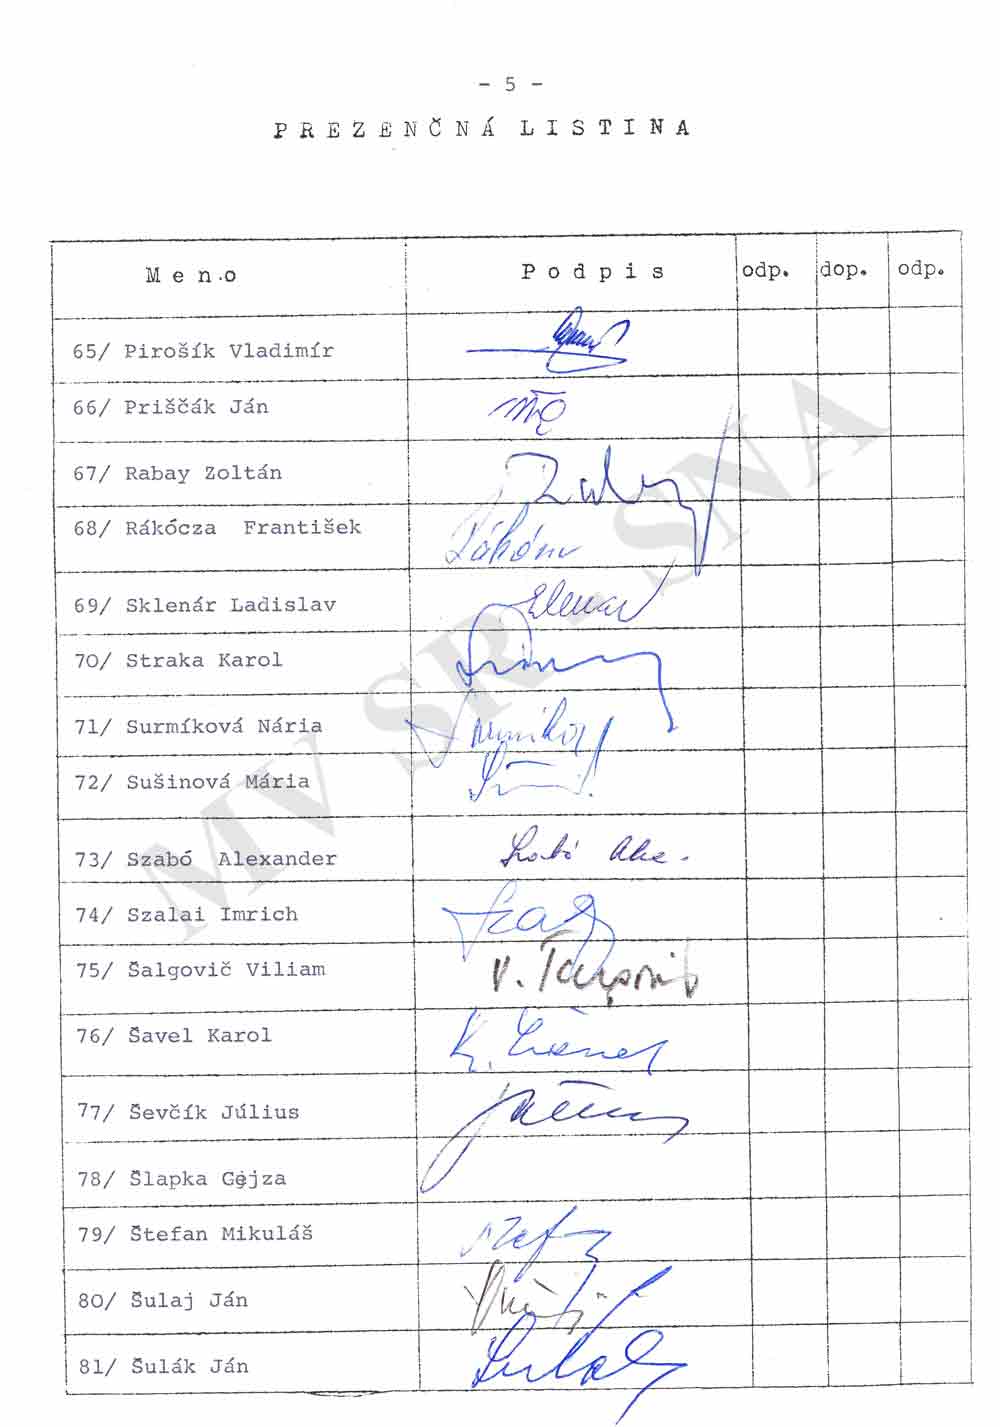 - 5 -
PREZENČNÁ LISTINA
Meno Podpis odp. dop. odp.
65/ Pirošík Vladimír
66/ Priščák Ján
67/ Rabay Zoltán
68/ Rákócza František
69/ Sklenár Ladislav
70/ Straka Karol
71/ Surmíková Nária
72/ Sušinová Mária
73/ Szabó Alexander Szabó Alex.
74/ Szalai Imrich
75/ Šalgovič Viliam
76/ Šavel Karol
77/ Ševčík Július
78/ Šlapka Gejza
79/ Štefan Mikuláš
80/ Šulaj Ján
81/ Šulák Ján
MV SR - SNA